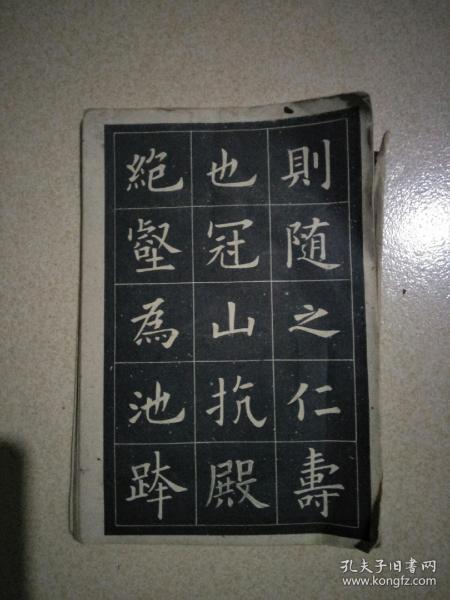 則随之仁壽
也冠山抗殿
絶壑為池跨
孔夫子旧书网
www.kongfz.com